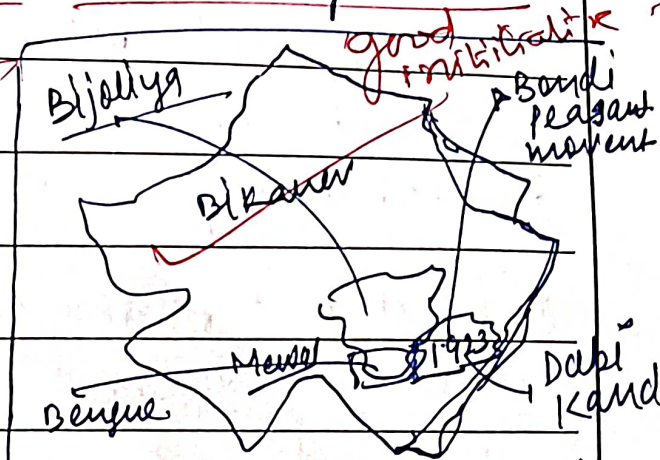 good
initialitive
Bijoliya
Bondi
peasant
movent
Bikaner
1923
Mewal
Dabi
Kand
Bengue